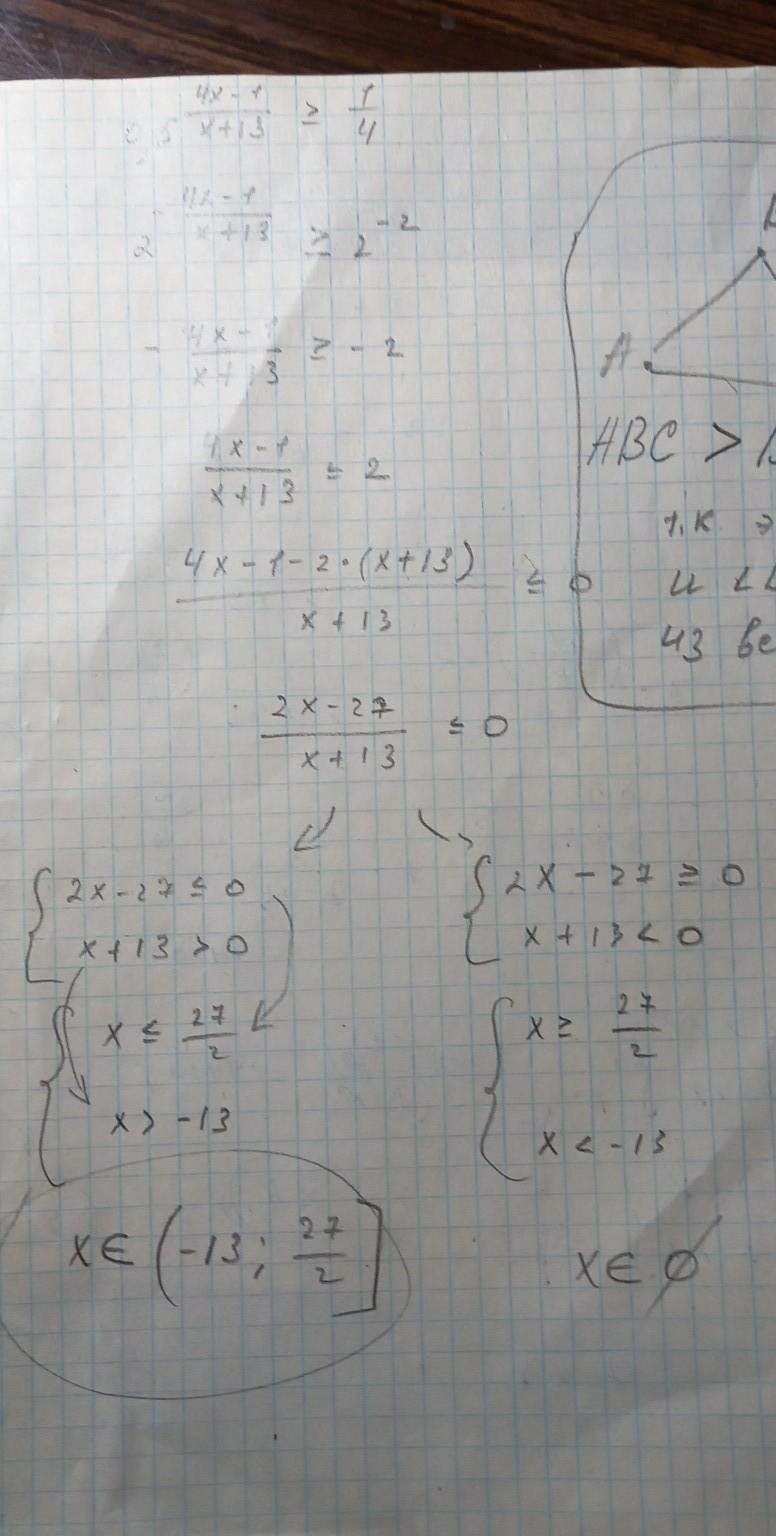 0,5^((4x-1)/(x+13)) ≥ 1/4
2^(-(4x-1)/(x+13)) ≥ 2^(-2)
- (4x-1)/(x+13) ≥ -2
(4x-1)/(x+13) ≤ 2
(4x-1-2·(x+13))/(x+13) ≤ 0
(2x-27)/(x+13) ≤ 0
{ 2x-27 ≤ 0
x+13 > 0
{ x ≤ 27/2
x > -13
x ∈ (-13; 27/2]
{ 2x-27 ≥ 0
x+13 < 0
{ x ≥ 27/2
x < -13
x ∈ ∅
A
ABC >
т.к
и
из